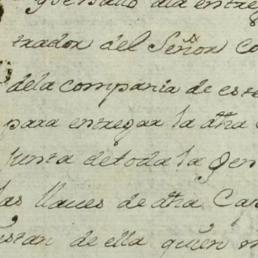 dia entre
trador del Señor Co
dela compania de este
para entregar la dha
junta detoda la gen
las llaves de dha Cas
estan de ella quien